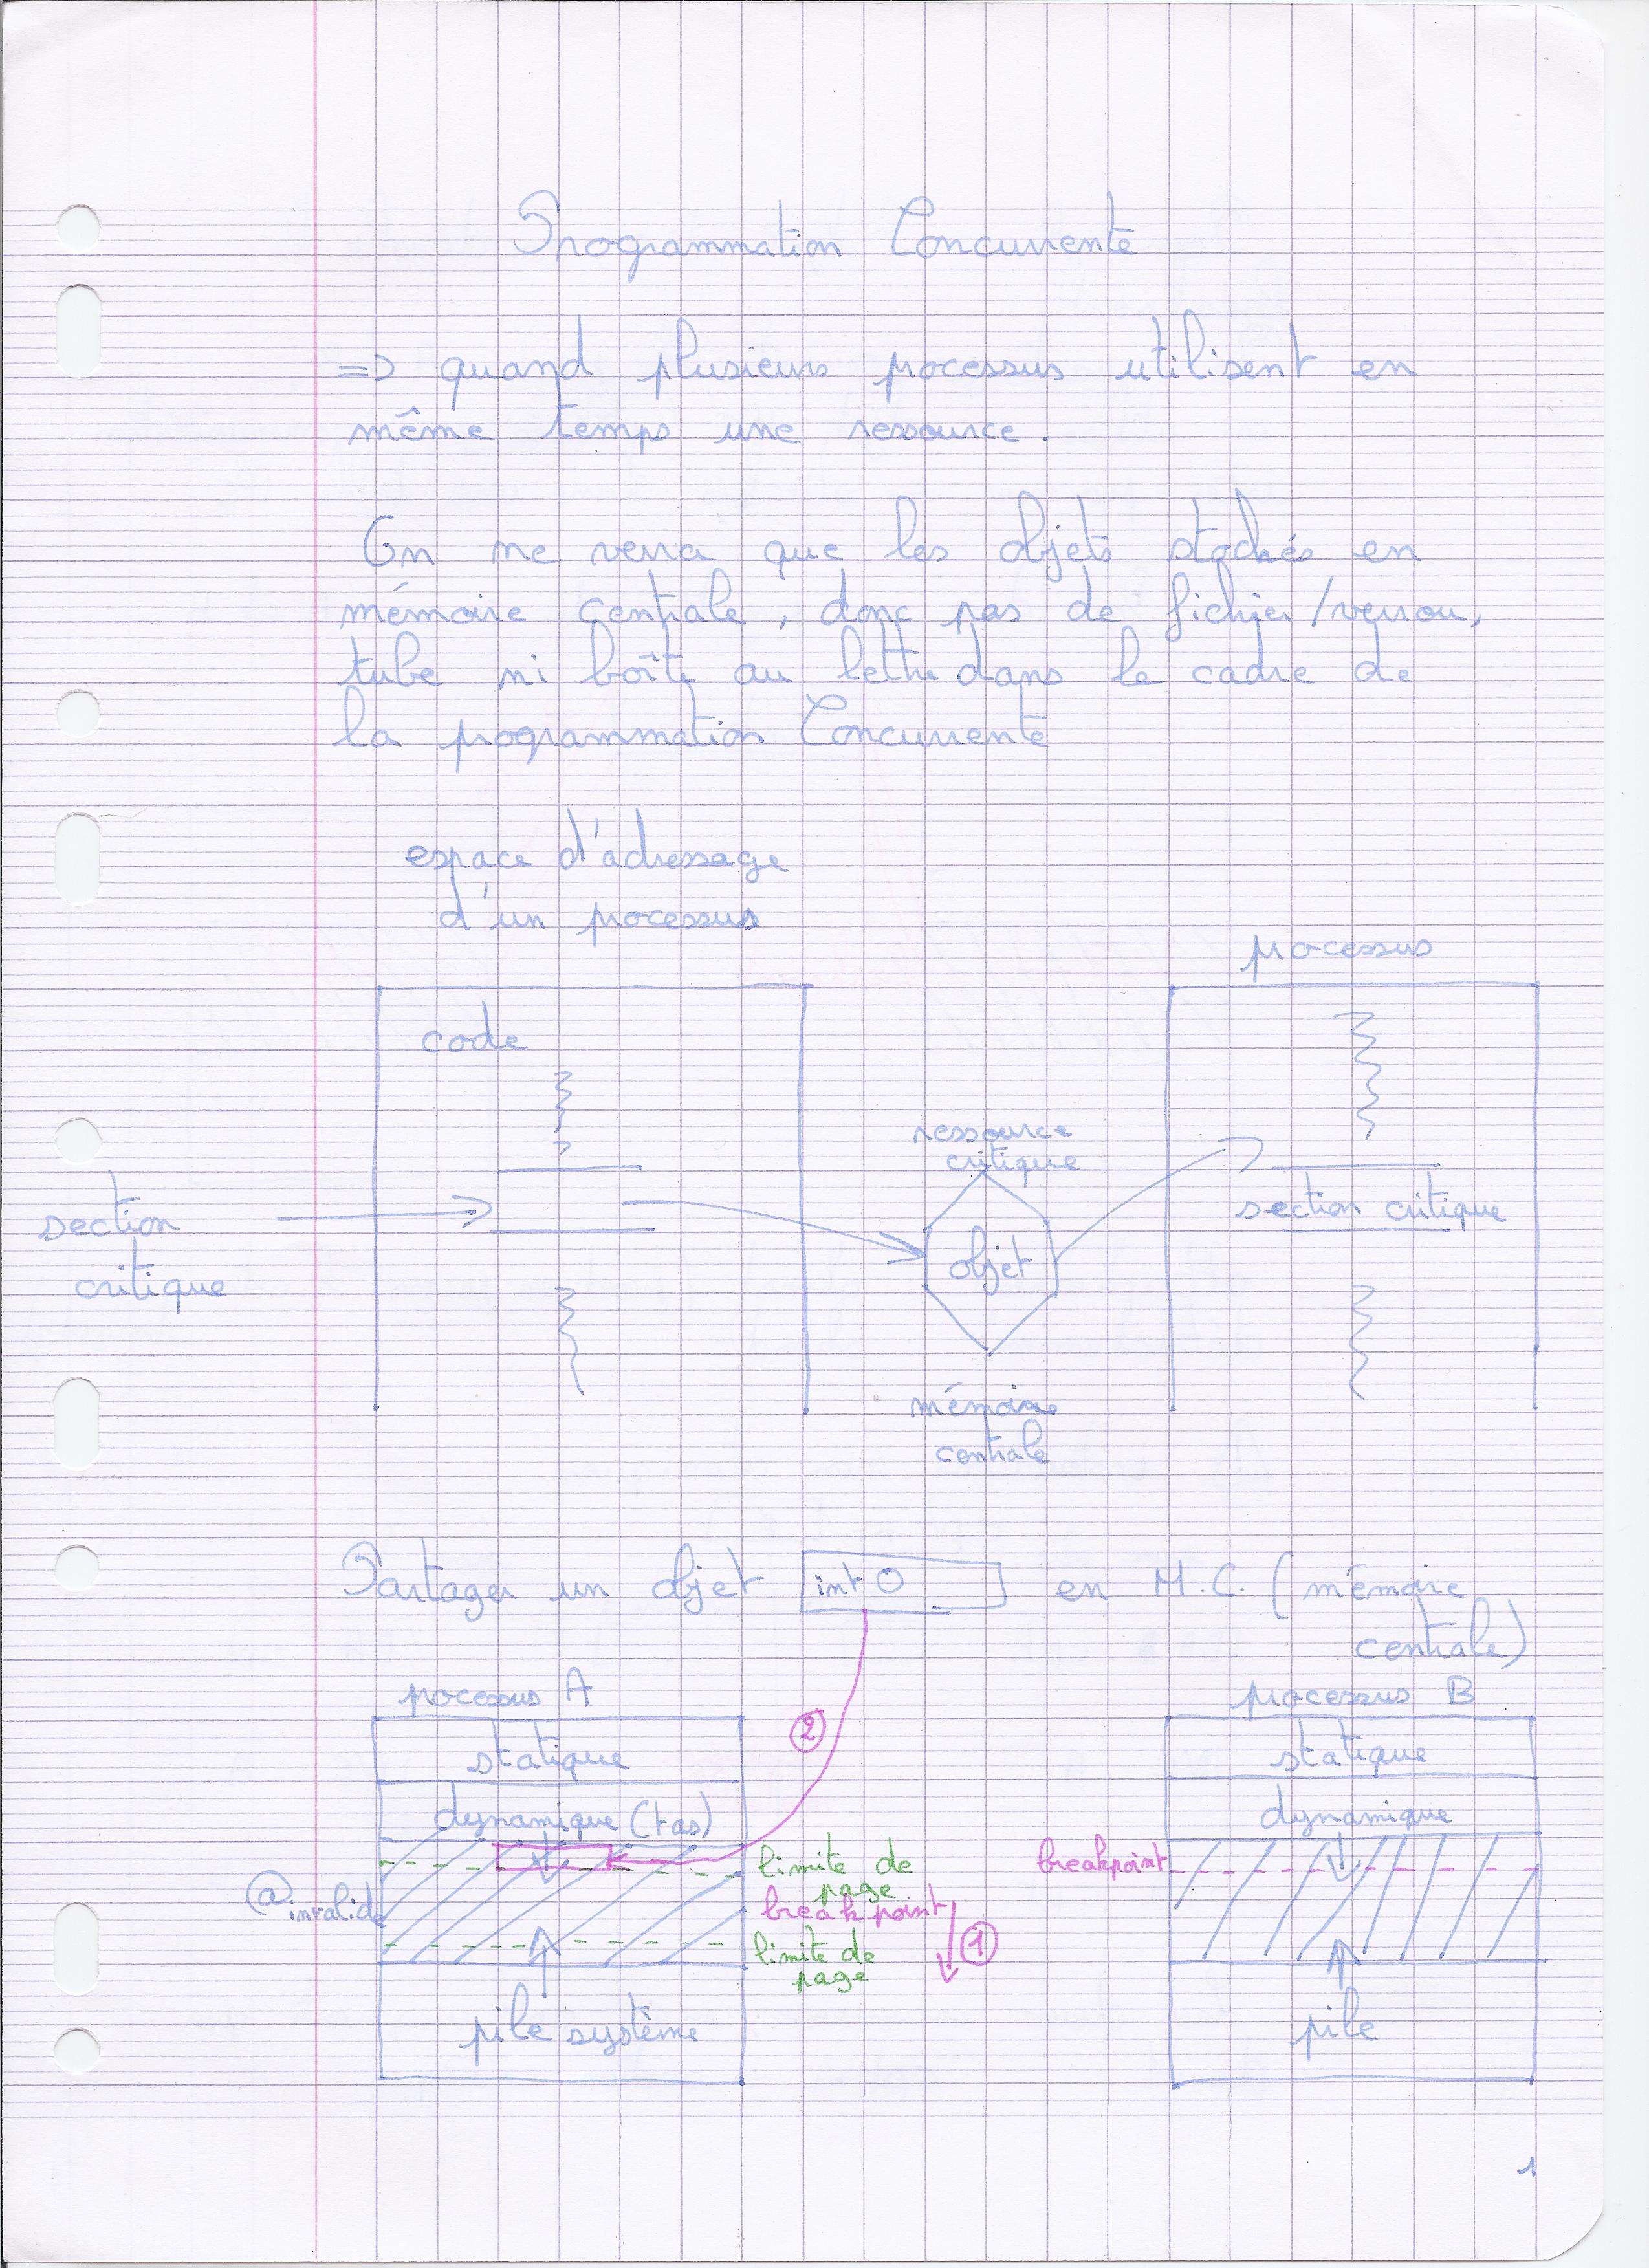 Programmation Concurrente
=> quand plusieurs processus utilisent en
même temps une ressource.
On ne verra que les objets stockés en
mémoire centrale, donc pas de fichier/verrou,
tube ni boîte au lettre dans le cadre de
la programmation Concurrente
espace d'adressage
d'un processus
processus
code
ressource
critique
section
critique
objet
section critique
mémoire
centrale
Partager un objet int O en M.C. (mémoire
centrale)
processus A
processus B
②
statique
statique
dynamique (tas)
dynamique
limite de
page
breakpoint
@invalide
breakpoint
①
limite de
page
pile système
pile
1